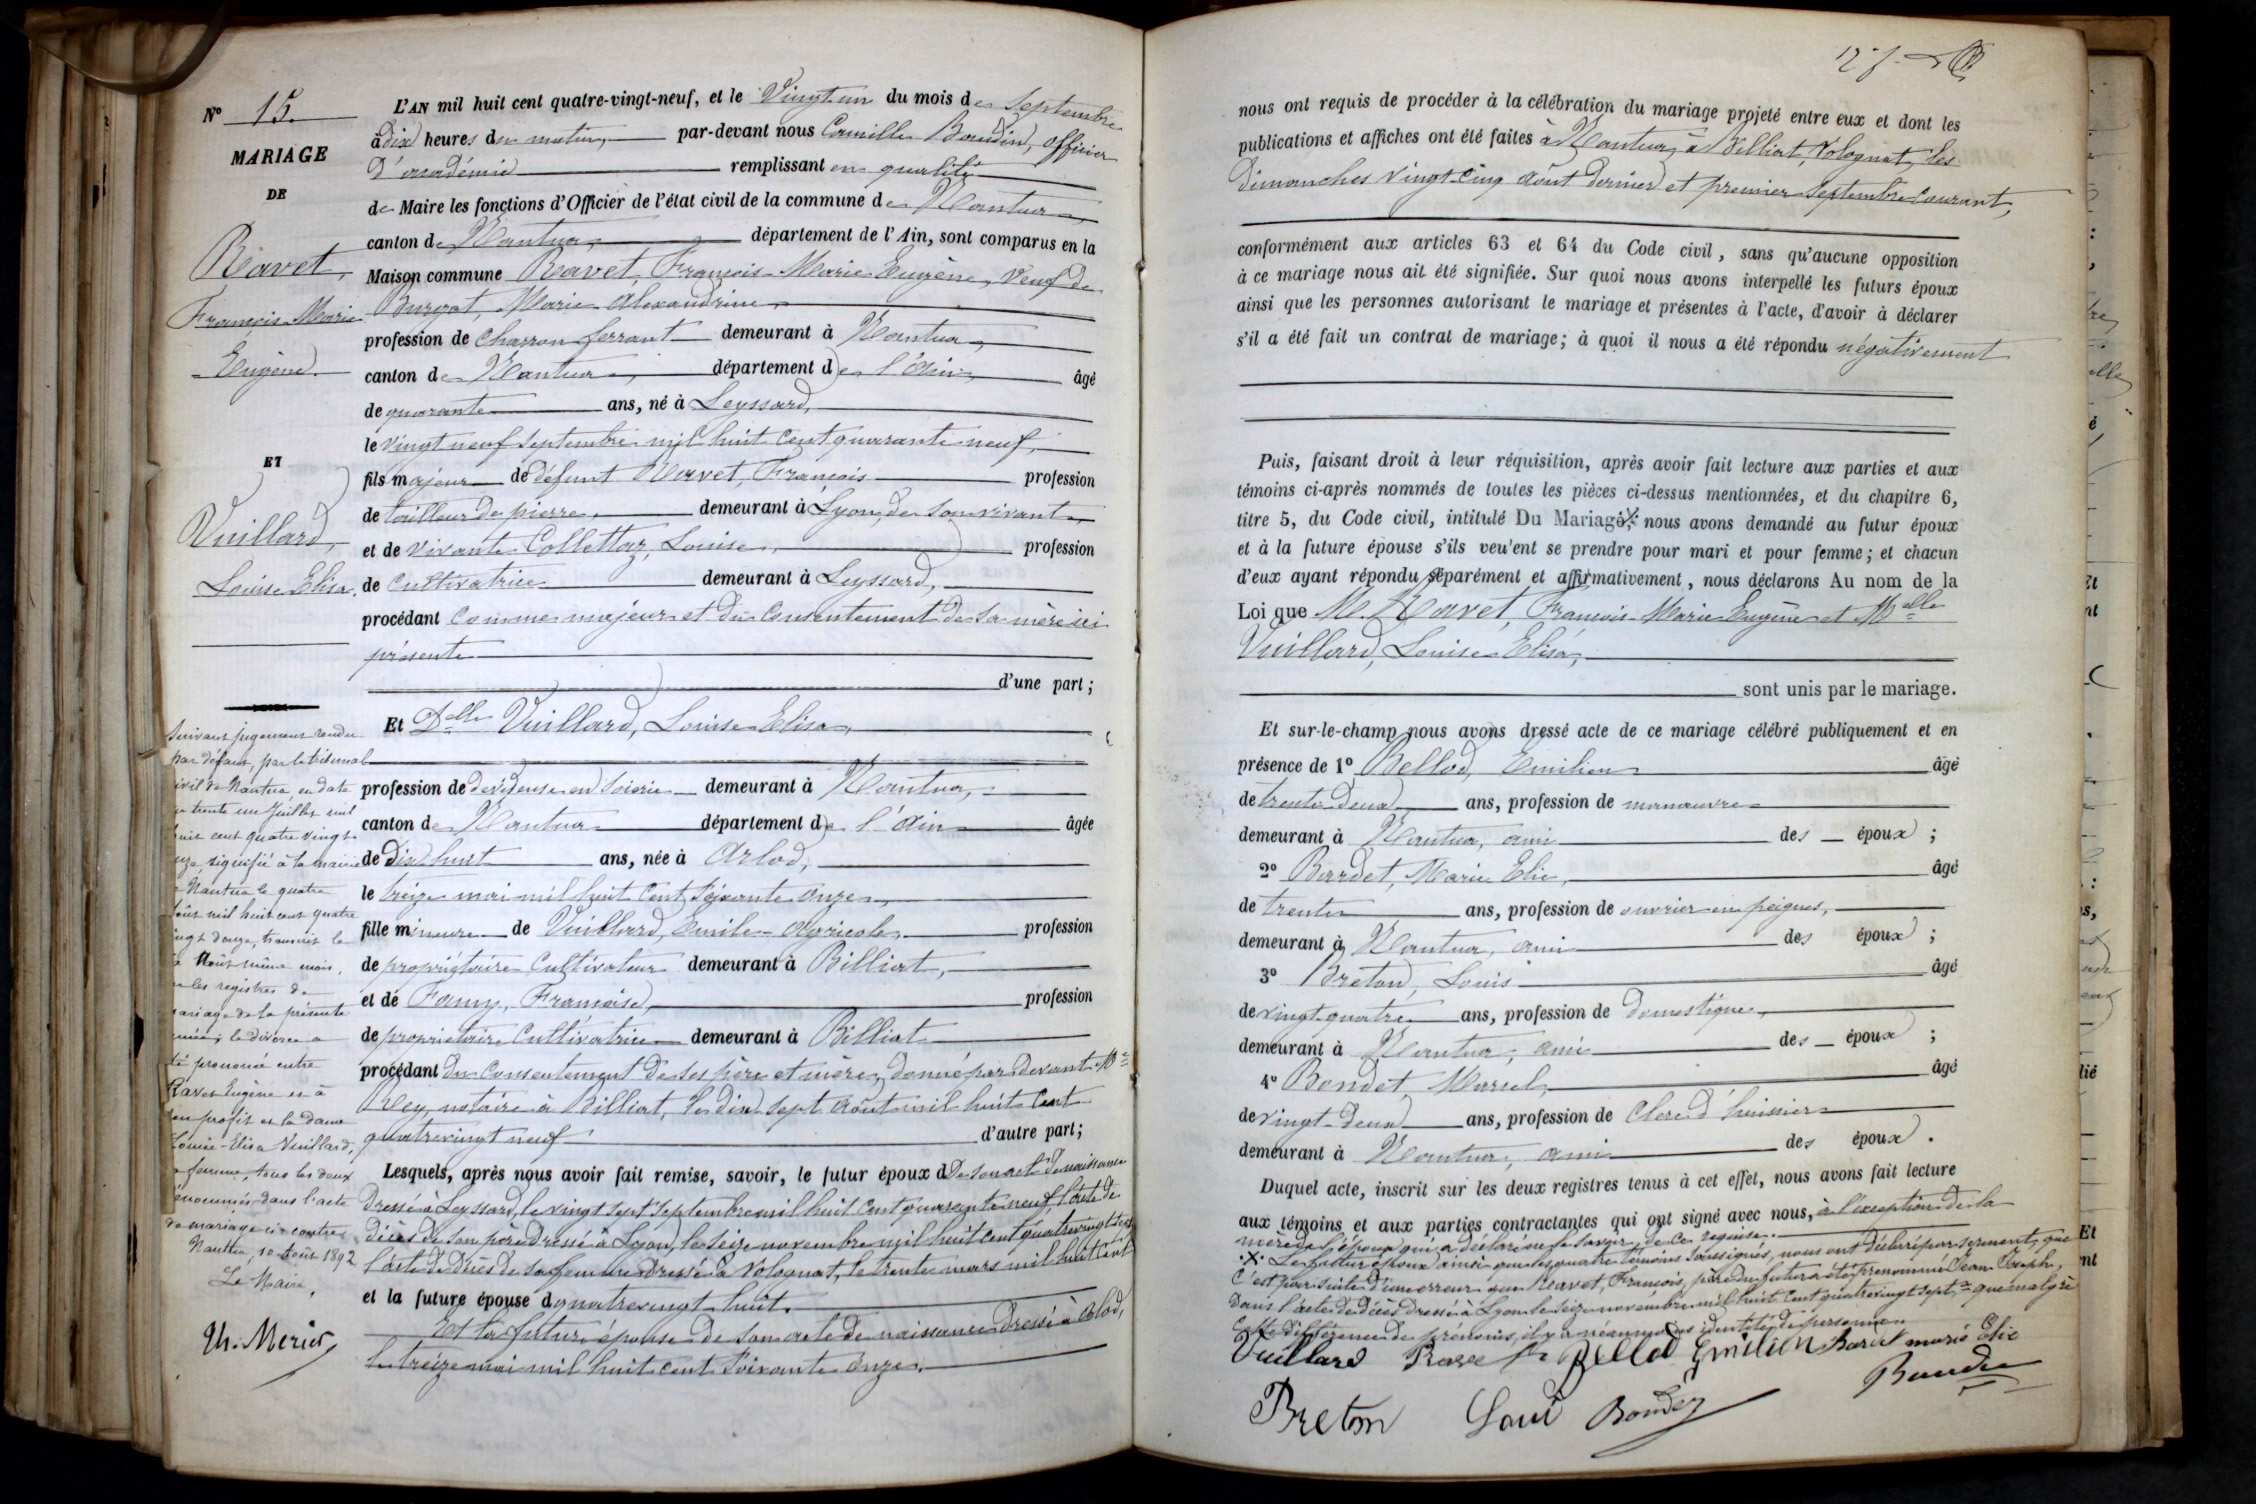 N° 15.
MARIAGE
DE
Ravet,
François Marie
Eugène.
ET
Vuillard,
Louise Elisa.
Suivant jugement rendu
par défaut, par le tribunal
civil de Nantua en date
du trente un Juillet mil
huit cent quatre vingt
onze signifié à la mairie
de Nantua le quatre
août mil huit cent quatre
vingt douze, transcrit le
août même mois,
les registres de
mariage de la présente
année; le divorce a
été prononcé entre
Ravet Eugène et à
son profit et la dame
Louise-Elisa Vuillard,
sa femme, tous les deux
dénommés dans l'acte
de mariage ci-contre
Nantua, 10 Août 1892
Le Maire,
Th. Mercier
L'AN mil huit cent quatre-vingt-neuf, et le Vingt un du mois de Septembre
à dix heures du matin, par-devant nous Camille Baudin, officier
d'académie remplissant en qualité
de Maire les fonctions d'Officier de l'état civil de la commune de Nantua,
canton de Nantua, département de l'Ain, sont comparus en la
Maison commune Ravet, François Marie Eugène, Veuf de
Burgat, Marie Alexandrine
profession de Charron ferrant demeurant à Nantua,
canton de Nantua, département de l'Ain, âgé
de quarante ans, né à Leyssard,
le vingt neuf septembre mil huit cent quarante neuf,
fils majeur de défunt Ravet, François profession
de tailleur de pierre, demeurant à Lyon, de son vivant,
et de vivante Collettaz, Louise, profession
de Cultivatrice demeurant à Leyssard,
procédant comme majeur et du consentement de sa mère ici
présente
d'une part;
Et Delle Vuillard, Louise Elisa,
profession de dévideuse en soierie demeurant à Nantua,
canton de Nantua département de l'Ain âgée
de Dix huit ans, née à Arlod,
le treize mai mil huit cent soixante onze,
fille mineure de Vuillard, Emile-Agricole, profession
de propriétaire Cultivateur demeurant à Billiat,
et de Famy, Françoise, profession
de propriétaire Cultivatrice demeurant à Billiat
procédant du Consentement de ses père et mère, donné par devant Me
Rey, notaire à Billiat, le dix sept août mil huit cent
quatrevingt neuf d'autre part;
Lesquels, après nous avoir fait remise, savoir, le futur époux d De son acte de naissance
Dressé à Leyssard, le vingt sept Septembre mil huit cent quarante neuf, l'acte de
décès de son père Dressé à Lyon, le seize novembre mil huit cent quatrevingt sept
l'acte de Décès de sa femme Dressé à Volognat, le trente mars mil huit cent
et la future épouse d quatrevingt huit.
Et la future épouse de son acte de naissance Dressé à Arlod,
le treize mai mil huit cent soixante onze.
127.
nous ont requis de procéder à la célébration du mariage projeté entre eux et dont les
publications et affiches ont été faites à Nantua, à Billiat, Volognat, les
Dimanches vingt-cinq août dernier et premier Septembre courant,
conformément aux articles 63 et 64 du Code civil, sans qu'aucune opposition
à ce mariage nous ait été signifiée. Sur quoi nous avons interpellé les futurs époux
ainsi que les personnes autorisant le mariage et présentes à l'acte, d'avoir à déclarer
s'il a été fait un contrat de mariage; à quoi il nous a été répondu négativement
Puis, faisant droit à leur réquisition, après avoir fait lecture aux parties et aux
témoins ci-après nommés de toutes les pièces ci-dessus mentionnées, et du chapitre 6,
titre 5, du Code civil, intitulé Du Mariage, nous avons demandé au futur époux
et à la future épouse s'ils veu'ent se prendre pour mari et pour femme; et chacun
d'eux ayant répondu séparément et affirmativement, nous déclarons Au nom de la
Loi que M. Ravet, François Marie Eugène et Melle
Vuillard, Louise Elisa,
sont unis par le mariage.
Et sur-le-champ nous avons dressé acte de ce mariage célébré publiquement et en
présence de 1° Bellod, Emilien âgé
de trente deux ans, profession de manœuvre
demeurant à Nantua, ami des époux;
2° Bardet, Marie Elie, âgé
de trente ans, profession de ouvrier en peignes,
demeurant à Nantua, ami des époux;
3° Breton, Louis âgé
de vingt quatre ans, profession de Domestique,
demeurant à Nantua, ami des époux;
4° Bondet Marcel, âgé
de vingt-deux ans, profession de Clerc d'huissier
demeurant à Nantua, ami des époux.
Duquel acte, inscrit sur les deux registres tenus à cet effet, nous avons fait lecture
aux témoins et aux parties contractantes qui ont signé avec nous, à l'exception de la
mère de l'époux qui a déclaré ne le savoir, de ce requise.
.X. Le futur époux ainsi que les quatre témoins soussignés, nous ont déclaré par serment, que
C'est par suite d'une erreur que Ravet, François, père du futur a été prénommé Jean Joseph,
Dans l'acte de décès dressé à Lyon le seize novembre mil huit cent quatrevingt sept, que malgré
cette différence de prénoms, il y a néanmoins identité de personne
Vuillard Ravet Bellod Emilien Bardet marie Elie
Breton Loui Bondet Baudin